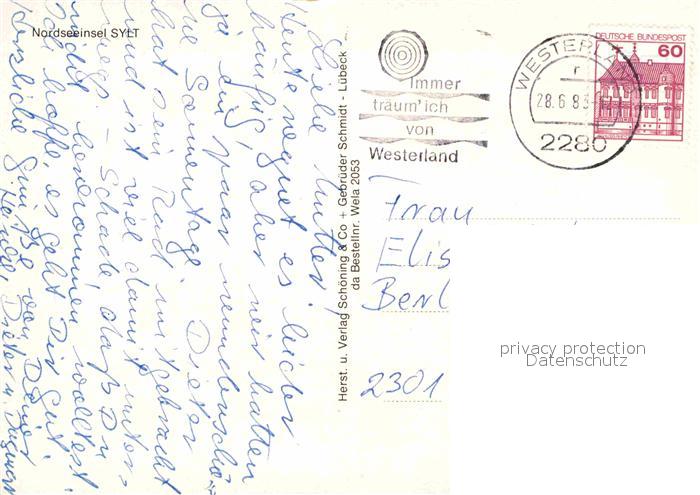 Nordseeinsel SYLT
Liebe Mutter!
Heute regnet es leider
häufig, aber wir hatten
ja ein paar wunderschö-
ne Sonnentage. Dieter
hat sein Rad mitgebracht
und ist viel damit unter-
wegs – Schade, daß Du
nicht
wolltest.
Ich hoffe, es geht Dir gut!
Herzliche Grüße von Deiner
Dieter u. Dagmar
Herst. u. Verlag Schöning & Co + Gebrüder Schmidt - Lübeck
da Bestellnr. Wela 2053
Immer
träum' ich
von
Westerland
WESTERLAND
28.6.83
2280
DEUTSCHE BUNDESPOST
60
Frau
Elis
Berl
2301
privacy protection
Datenschutz